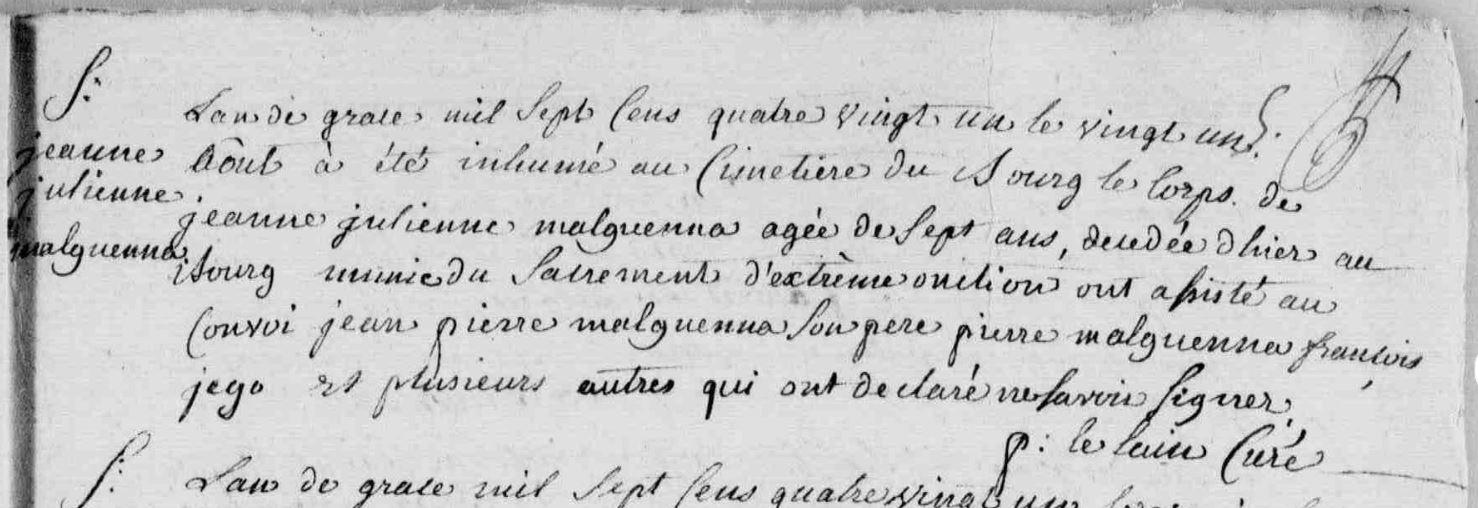 S:
jeanne
julienne
malguenna
Lan de grace mil Sept Cens quatre vingt un le vingt un
Aôut à été inhumé au Cimetiere du Bourg le Corps. de
jeanne julienne malguenna agée de Sept ans, decedée d'hier au
Bourg munie du Sacrement d'extrème onction ont assisté au
Convoi jean pierre malguenna Son pere pierre malguenna francois
jego et plusieurs autres qui ont declaré ne savoir Signer,
p: le lain Curé
S: Lan de grace mil Sept Cens quatre vingt un